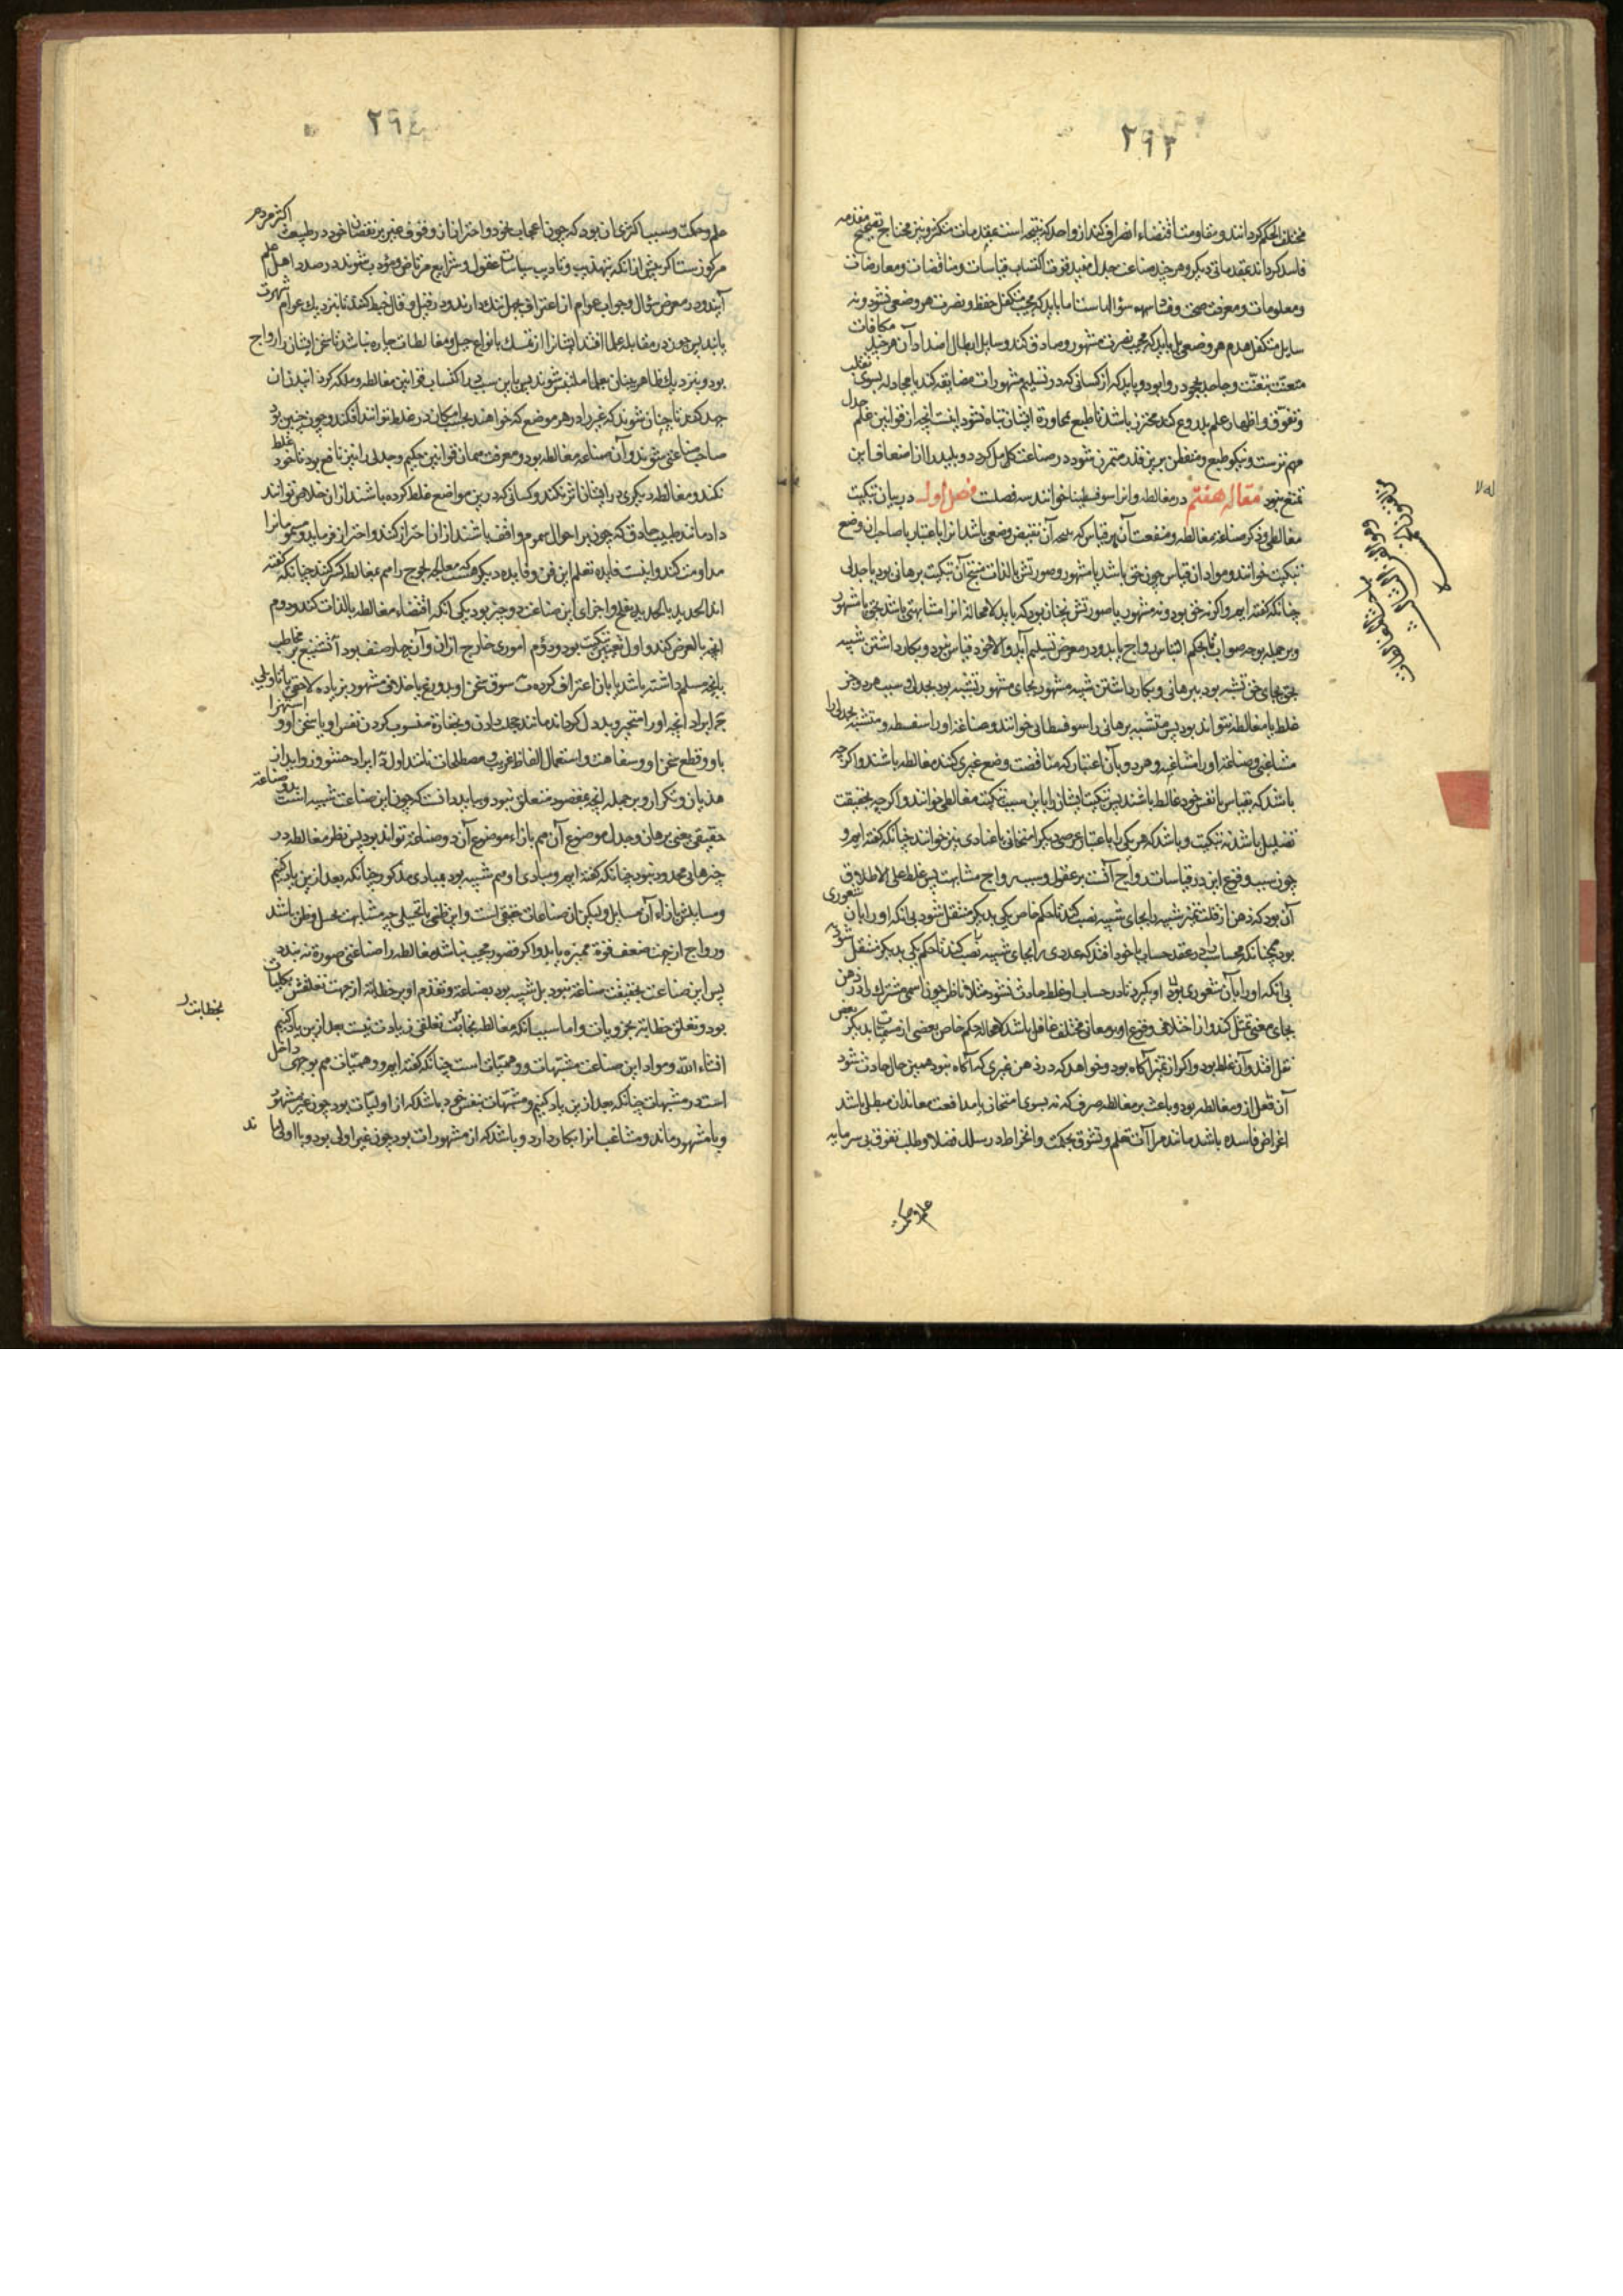 ۲۹۳
مختلف الحکم گردانند و مقاومت اقتضاء انصراف کند از واحد که نتیجه است بمقدمات متکثر و نیز محتاج بتصحیح مقدمه
فاسد گرداند بمقدماتی دیگر و هر چند صناعت جدل مفید قوت اکتساب قیاسات و مناقضات و معارضات
و معلومات و معرفت صحت و فساد همه سؤالهاست اما باید که مجیب متکفل حفظ و نصرت هر وضعی نشود و نه
سایل متکفل هدم هر وضعی بل باید که مجیب نصرت مشهور و صادق کند و سایل ابطال اضداد آن هر چند مکافات
متعنت بتعنت و جاحد بجحود روا بود و باید که از کسانی که در تسلیم مشهورات مضایقه کند یا مجادله بسوی تغلب
و تفوق و اظهار علم بدروغ کند محترز باشد تا طبع بمحاورة ایشان تباه نشود اینست آنچه از قوانین علم جدل
مهم ترست و نیکو طبع و متفطن برین قدر متمرن شود در صناعت کامل گردد و بلید را از اضعاف این
تمتع نبود مقاله هفتم در مغالطه و آنرا سوفسطیقا خوانند سه فصلست فصل اول در بیان تبکیت
مغالطی و ذکر صناعة مغالطه و منفعت آن هر قیاس که نتیجه آن نقیض وضعی باشد آنرا باعتبار با صاحب آن وضع
تبکیت خوانند و مواد آن قیاس چون حق باشد یا مشهور و صورتش بالذات منتج آن تبکیت برهانی بود یا جدلی
چنانکه گفته ایم و اگر نه حق بود و نه مشهور یا صورتش نچنان بود که باید لا محاله آنرا مشابهتی باشد بحق یا مشهور
و بر جمله بوجه صواب تا بحکم التباس رواج یابد و در معرض تسلیم آید و الا خود قیاس نبود و بکار داشتن شبیه
بحق بجای حق تشبه بود ببرهانی و بکار داشتن شبیه مشهور بجای مشهور تشبه بود بجدل و سبب هر دو جز
غلط یا مغالطه نتواند بود پس متشبه ببرهانی را سوفسطائی خوانند و صناعة او را سفسطه و متشبه بجدلی را
مشاغبی و صناعة او را مشاغبه و هر دو بآن اعتبار که مناقضت وضع غیری کنند مغالطه باشند و اگر چه
باشد که بقیاس با نفس خود غالط باشند پس تبکیت ایشان را باین سبب تبکیت مغالطی خوانند و اگر چه بحقیقت
تضلیل باشد نه تبکیت و باشد که هر یکی را باعتبار عرضی دیگر امتحانی یا عنادی نیز خوانند چنانکه گفته ایم و
چون سبب وقوع این در قیاسات رواج آنست بر عقول و سبب رواج مشابهت پس غلط علی الاطلاق
آن بود که ذهن از قلت تمیز شبیه را بجای شبیه نصب کند تا حکم خاص یکی بدیگر منتقل شود بی آنکه او را بآن شعوری
بود همچنانکه محاسب را در عقد حساب با خود افتد که عددی را بجای شبیه نصب کند تا حکم یکی بدیگر منتقل شود
بی آنکه او را بآن شعوری بود او بگیرد تا در حساب او غلط حادث نشود مثلا ناظر چون اسمی مشترک را در ذهن
بجای معنی تمثل کند و از اختلاف وقوع او بر معانی مختلف غافل باشد لا محاله حکم خاص بعضی از مسمیات بدیگر بعض
نقل افتد و آن غلط بود و اگر از تمیز آگاه بود و خواهد که در ذهن غیری که آگاه نبود همین حال حادث شود
آن فعل از و مغالطه بود و باعث بر مغالطه صرف که نه بسوی امتحان یا مدافعت معاندان مبطل باشد
اغراض فاسده باشد مانند مراآت بعلم و تشوق بحکمت و انخراط در سلک فضلا و طلب تفوق بی سرمایه
علم و حکمت
۲۹٤
علم و حکمت و سبب اکثری آن بود که چون اعجاب بخود و احتراز از وقوف غیر بر نقصان خود در طبیعت اکثر مردم
مرکوزست اگر پیش از آنکه بتهذیب و تادیب سیاسات عقول و شرایع مرتاض و مؤدب شوند در صدد اهل علم
آیند و در معرض سؤال و جواب عوام از اعتراف بجهل ننگ دارند و در قیل و قال خبط کنند تا بنزدیک عوام شهرت
یابند پس چون در مقابله علما افتند ایشانرا از تمسک بانواع حیل و مغالطات چاره نباشد تا سخن ایشان را رواج
بود و بنزدیک ظاهر بینان بجهل ملتبس نشوند پس باین سبب در اکتساب قوانین مغالطه و ملکه کردانیدن آن
جهد کنند تا چنان شوند که غیر را در هر موضع که خواهند بحسب امکان در غلط توانند افکند و چون چنین بود
صاحب صناعتی شوند و آن صناعة مغالطه بود و معرفت همان قوانین حکیم و جدلی را نیز نافع بود تا خود غلط
نکند و مغالطه دیگری در ایشان اثر نکند و کسانی که درین مواضع غلط کرده باشند از آن خلاص توانند
داد مانند طبیب حاذق که چون بر احوال سموم واقف باشند از آن احتراز کند و احتراز فرماید و مسمومانرا
مداومت کند و اینست فایده تعلم این فن و فایده دیگر هست که معاند لجوج را هم بمغالطه کسر کنند چنانکه گفته
اند الحدید بالحدید یفلح و اجزای این صناعت دو چیز بود یکی آنکه اقتضاء مغالطه بالذات کند و دوم
آنچه بالعرض کند و اول نفس تبکیت بود و دوم اموری خارج از آن و آن چهار صنف بود آ تشنیع بر مخاطب
بآنچه مسلم داشته باشد یا بآن اعتراف کرده ب سوق سخن او بدروغ یا خلافی مشهور بزیاده لاحقی یا تاویلی
ج ایراد آنچه او را متحیر و بد دل گرداند مانند خجلت دادن و بحقارة منسوب کردن نفس او یا سخن او و استهزا
باو و قطع سخن او و سفاهت و استعمال الفاظ غریب و مصطلحات نامتداول د ایراد حشو و زواید از
هذیان و تکرار و بر جمله آنچه بمقصود متعلق نبود و بباید دانست که چون این صناعت شبیه است بدو صناعة
حقیقی یعنی برهان و جدل موضوع آن هم بازاء موضوع آن دو صناعة تواند بود پس نظر مغالطه در
چیزهائی محدود نبود چنانکه گفته ایم و مبادی او هم شبیه بود بمبادی مذکور چنانکه بعد ازین یاد کنیم
و مسایلش بازاء آن مسایل و لیکن آن صناعات حقیقی است و این ظنی یا تخیلی چه مشابهت بحسب ظن باشد
و رواج از جهت ضعف قوة ممیزه یابد و اگر قصور مجیب نباشد مغالطه را صناعتی صورة نه بندد
پس این صناعت بحقیقت صناعة نبود بل شبیه بود بصناعة و تقدم او بر خطابة از جهت تعلقش بکلیات
بود و تعلق خطابة بجزویات و اما سبب آنکه مغالطه بخطابت تعلقی زیادت نیست بعد ازین یاد کنیم
انشاء الله و مواد این صناعت مشبهات و وهمیات است چنانکه گفته ایم و وهمیات هم بوجهی داخل
است در مشبهات چنانکه بعد ازین یاد کنیم و مشبهات بنفس خود باشد که از اولیات بود چون غیر مشهور
و یا مشهور ماند و مشاغب آنرا بکار دارد و باشد که از مشهورات بود چون غیر اولی بود و با اولی ما
ند
بخطابت